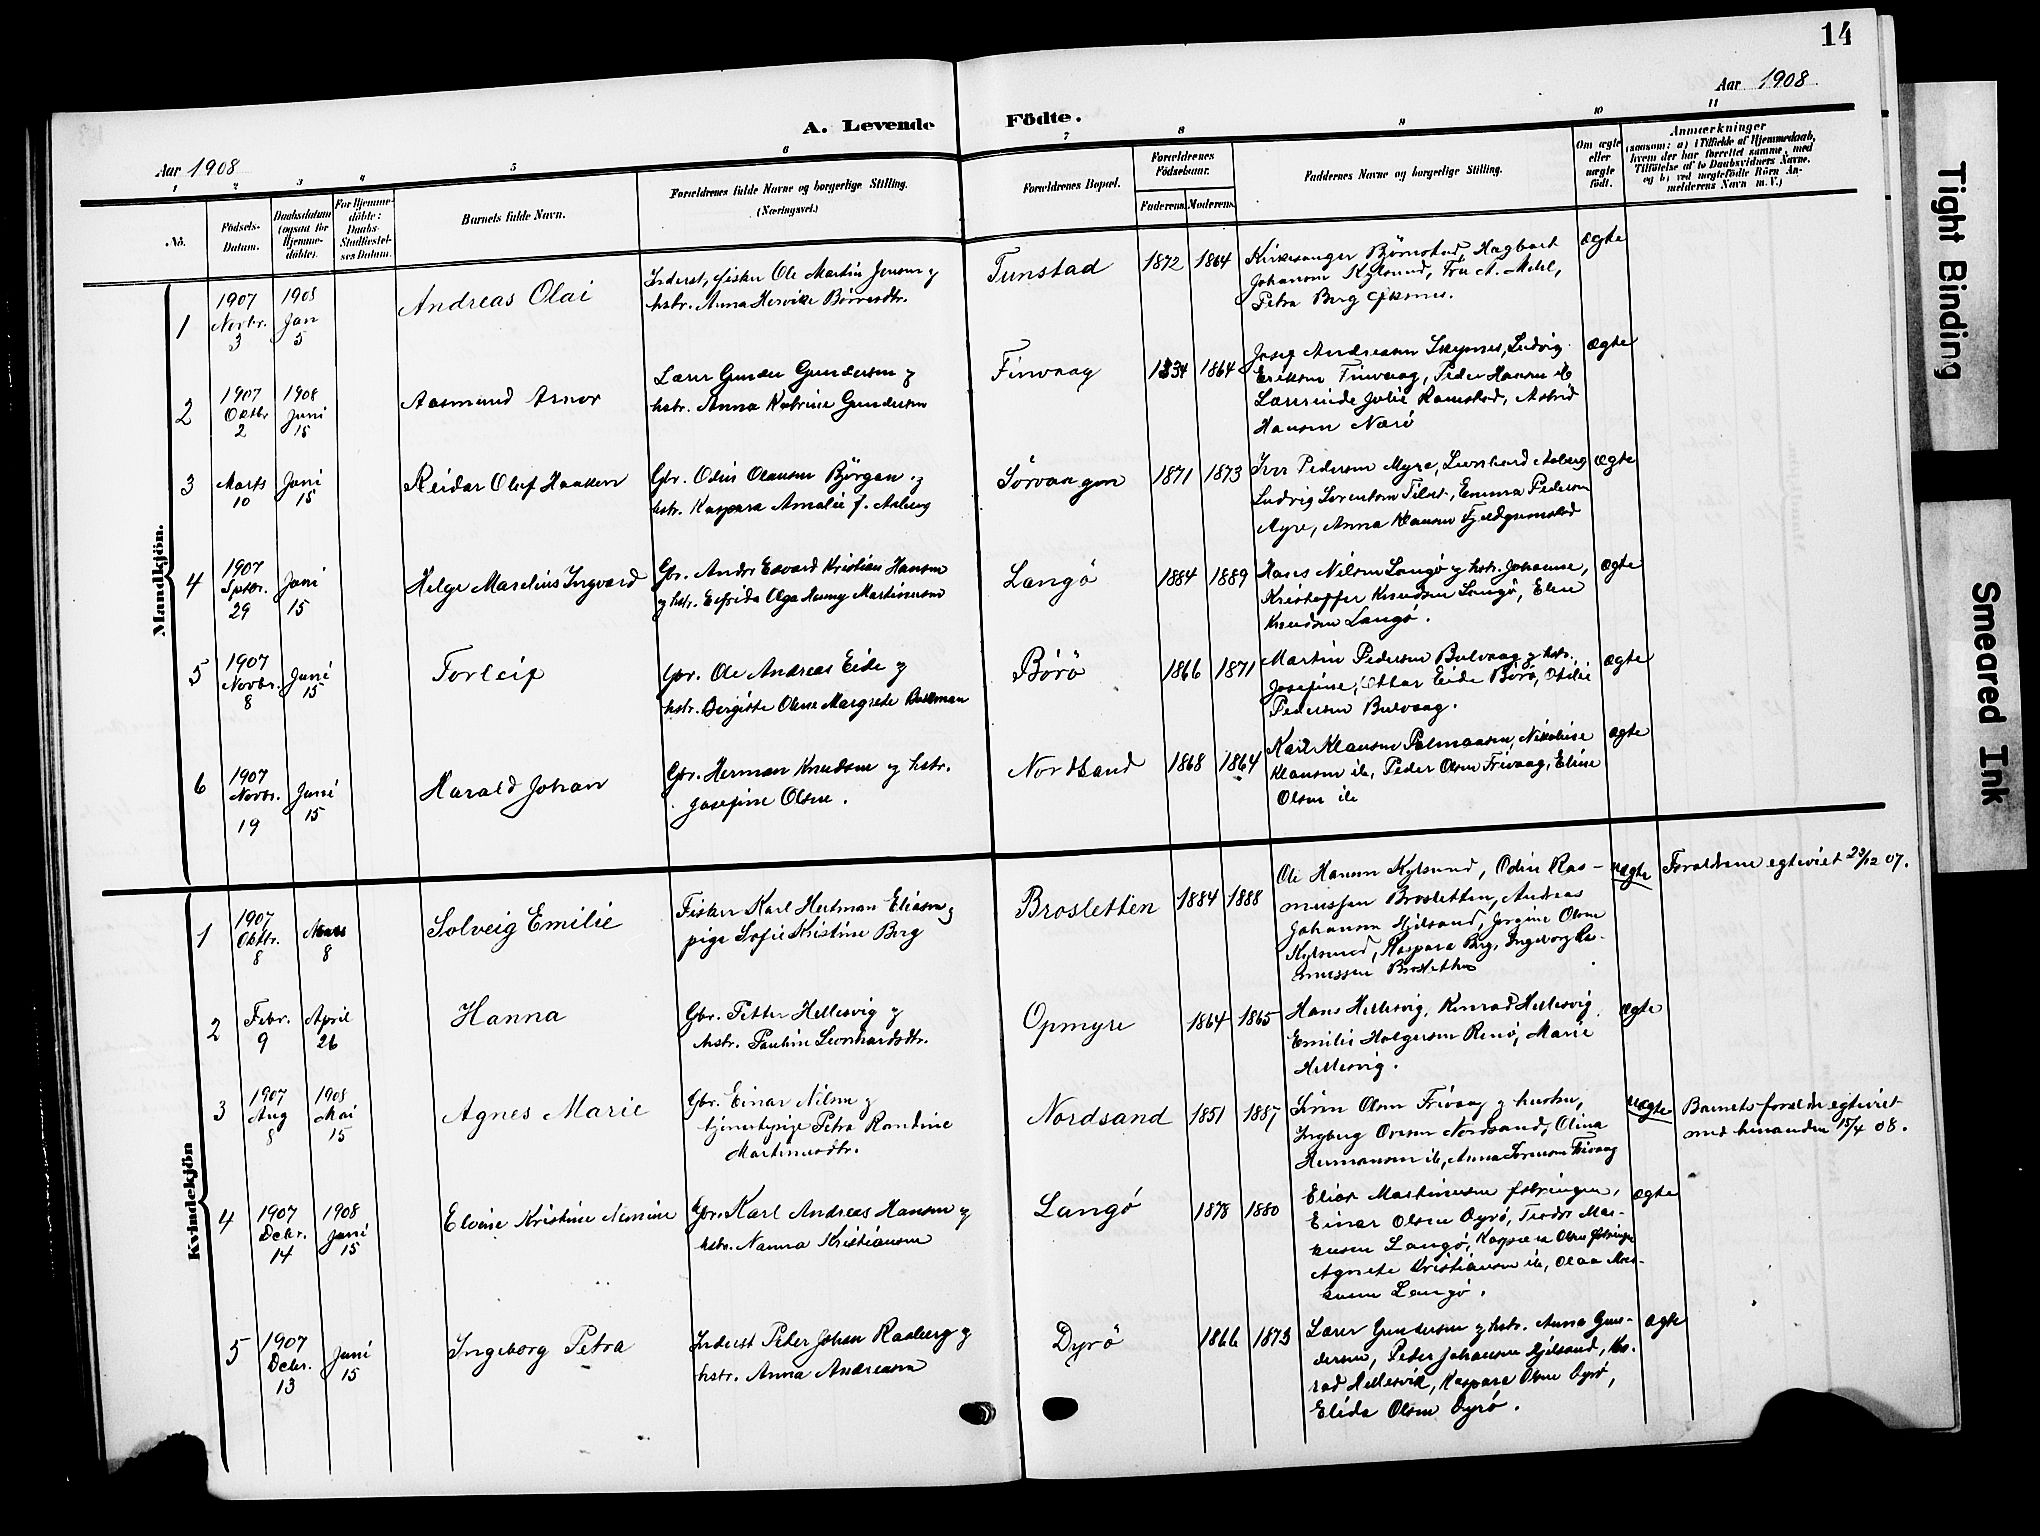 14
Aar 1908
A. Levende Födte.
Aar 1908
1 2 3 4 5 6 7 8 9 10 11
No.
Födsels-Datum.
Daabsdatum (ogsaa for Hjemme-döbte).
For Hjemme-döbte: Daabs-Stadfæstel-ses Datum.
Barnets fulde Navn.
Forældrenes fulde Navne og borgerlige Stilling. (Næringsvei.)
Forældrenes Bopæl.
Forældrenes Födselsaar.
Faderens. Moderens.
Faddernes Navne og borgerlige Stilling.
Om ægte eller uægte födt.
Anmærkninger
(saasom: a) i Tilfælde af Hjemmedaab, hvem der har forrettet samme, med Tilföielse af to Daabsvidners Navne, og b) ved uægtefödte Börn An-melderens Navn m. V.)
Mandkjön.
1
1907 Novbr. 3
1908 Jan 5
Andreas Olai
Inderst, fisker Ole Martin Jensen g
hstr. Anna Hervike Börresdtr.
Tunstad
1872 1864
Kirkesanger Björnstad, Hagbart
Johansen Kjelsund, Fru A. Mehl,
Petra Berg
ægte
2
1907 Oktbr 2
1908 Juni 15
Aasmund Arnor
Lærer Gunder Gundersen g
hstr. Anna Katrine Gundersen
Finvaag
1834 1864
Josef Andreasen, Ludvig
Eriksen Finvaag, Peder Hansen ib
Lærerinde Julie Ramstad, Astrid
Hansen Nærö
ægte
3
Marts 10
Juni 15
Reidar Oluf Haaken
Gbr. Odin Olausen Björgan g
hstr. Kaspara Amalie f. Aaberg
Sörvaagen
1871 1873
Iver Pedersen Myre, Leonhard Aaberg
Ludvig Lorentsen, Emma Pedersen
Myre, Anna Klausen
ægte
4
1907 Sptbr. 29
Juni 15
Helge Marelius Ingvard
Gbr. Andor Edvard Kristian Hansen
g hstr. Elfrida Olga Martinusen
Langö
1884 1889
Hans Nilsen Langö g hstr. Johanne,
Kristoffer Knudsen Langö, Eline
Knudsen Langö.
ægte
5
1907 Novbr. 8
Juni 15
Torleif
Gbr. Ole Andreas Eide g
hstr. Bergitte Oline Margrete
Börö
1866 1871
Martin Pedersen Bulvaag g hstr.
Josefine, Ottar Eide Börö, Otelie
Pedersen Bulvaag.
ægte
6
1907 Novbr. 19
Juni 15
Harald Johan
Gbr. Herman Knudsen g hstr.
Josefine Olsen.
Nordsand
1868 1864
Karl Klausen, Nikoline
Klausen ib, Peder Olsen Frivaag, Eline
Olsen ib
ægte
Kvindekjön
1
1907 Oktbr. 8
Mars 8
Solveig Emilie
Fisker Karl Hertman Eliasen g
pige Sofie Kristine Berg
Brosletten
1884 1888
Ole Hansen Kjelsund, Odin Ras-
mussen Brosletten, Andreas
Johansen, Jorgine Olsen
Kjelsund, Kaspara Berg, Ingeborg Ra-
smussen Brosletten
uægte
Forældrene egteviet 29/12 07.
2
Febr. 9
April 26
Hanna
Gbr. Petter Hellesvig g
hstr. Pauline Leonhardsdtr.
Opmyre
1864 1865
Hans Hellesvig, Konrad Hellesvig
Emilie Holgersen Renö, Marie
Hellesvig.
ægte
3
1907 Aug 8
1908 Mai 15
Agnes Marie
Gbr. Einar Nilsen g
tjenestepige Petra Randine
Martinusdtr.
Nordsand
1851 1887
Sören Olsen Frivaag g hustru,
Ingberg Nordsand, Olina
Hermansen ib, Anna Sörensen Frivaag
uægte
Barnets forældre egteviet
med hinanden 15/4 08.
4
1907 Debr. 14
1908 Juni 15
Elvine Kristine
Gbr. Karl Andreas Hansen g
hstr. Nanna Kristiansen
Langö
1878 1880
Elias Martinusen,
Einar Olsen Dyrö, Teodor Mar-
kusen Langö, Kaspara Olsen
Agnete Kristiansen ib, Olaa Mar-
kusen Langö.
ægte
5
1907 Debr. 13
Juni 15
Ingeborg Petra
Inderst Peder Johan Raaberg g
hstr. Anna Andreasen
Dyrö
1866 1873
Lærer Gundersen g hstr. Anna Gun-
dersen, Peder Johansen, Kon-
rad Hellesvik, Kaspara Olsen Dyrö,
Elida Olsen Dyrö.
ægte
Tight Binding
Smeared Ink